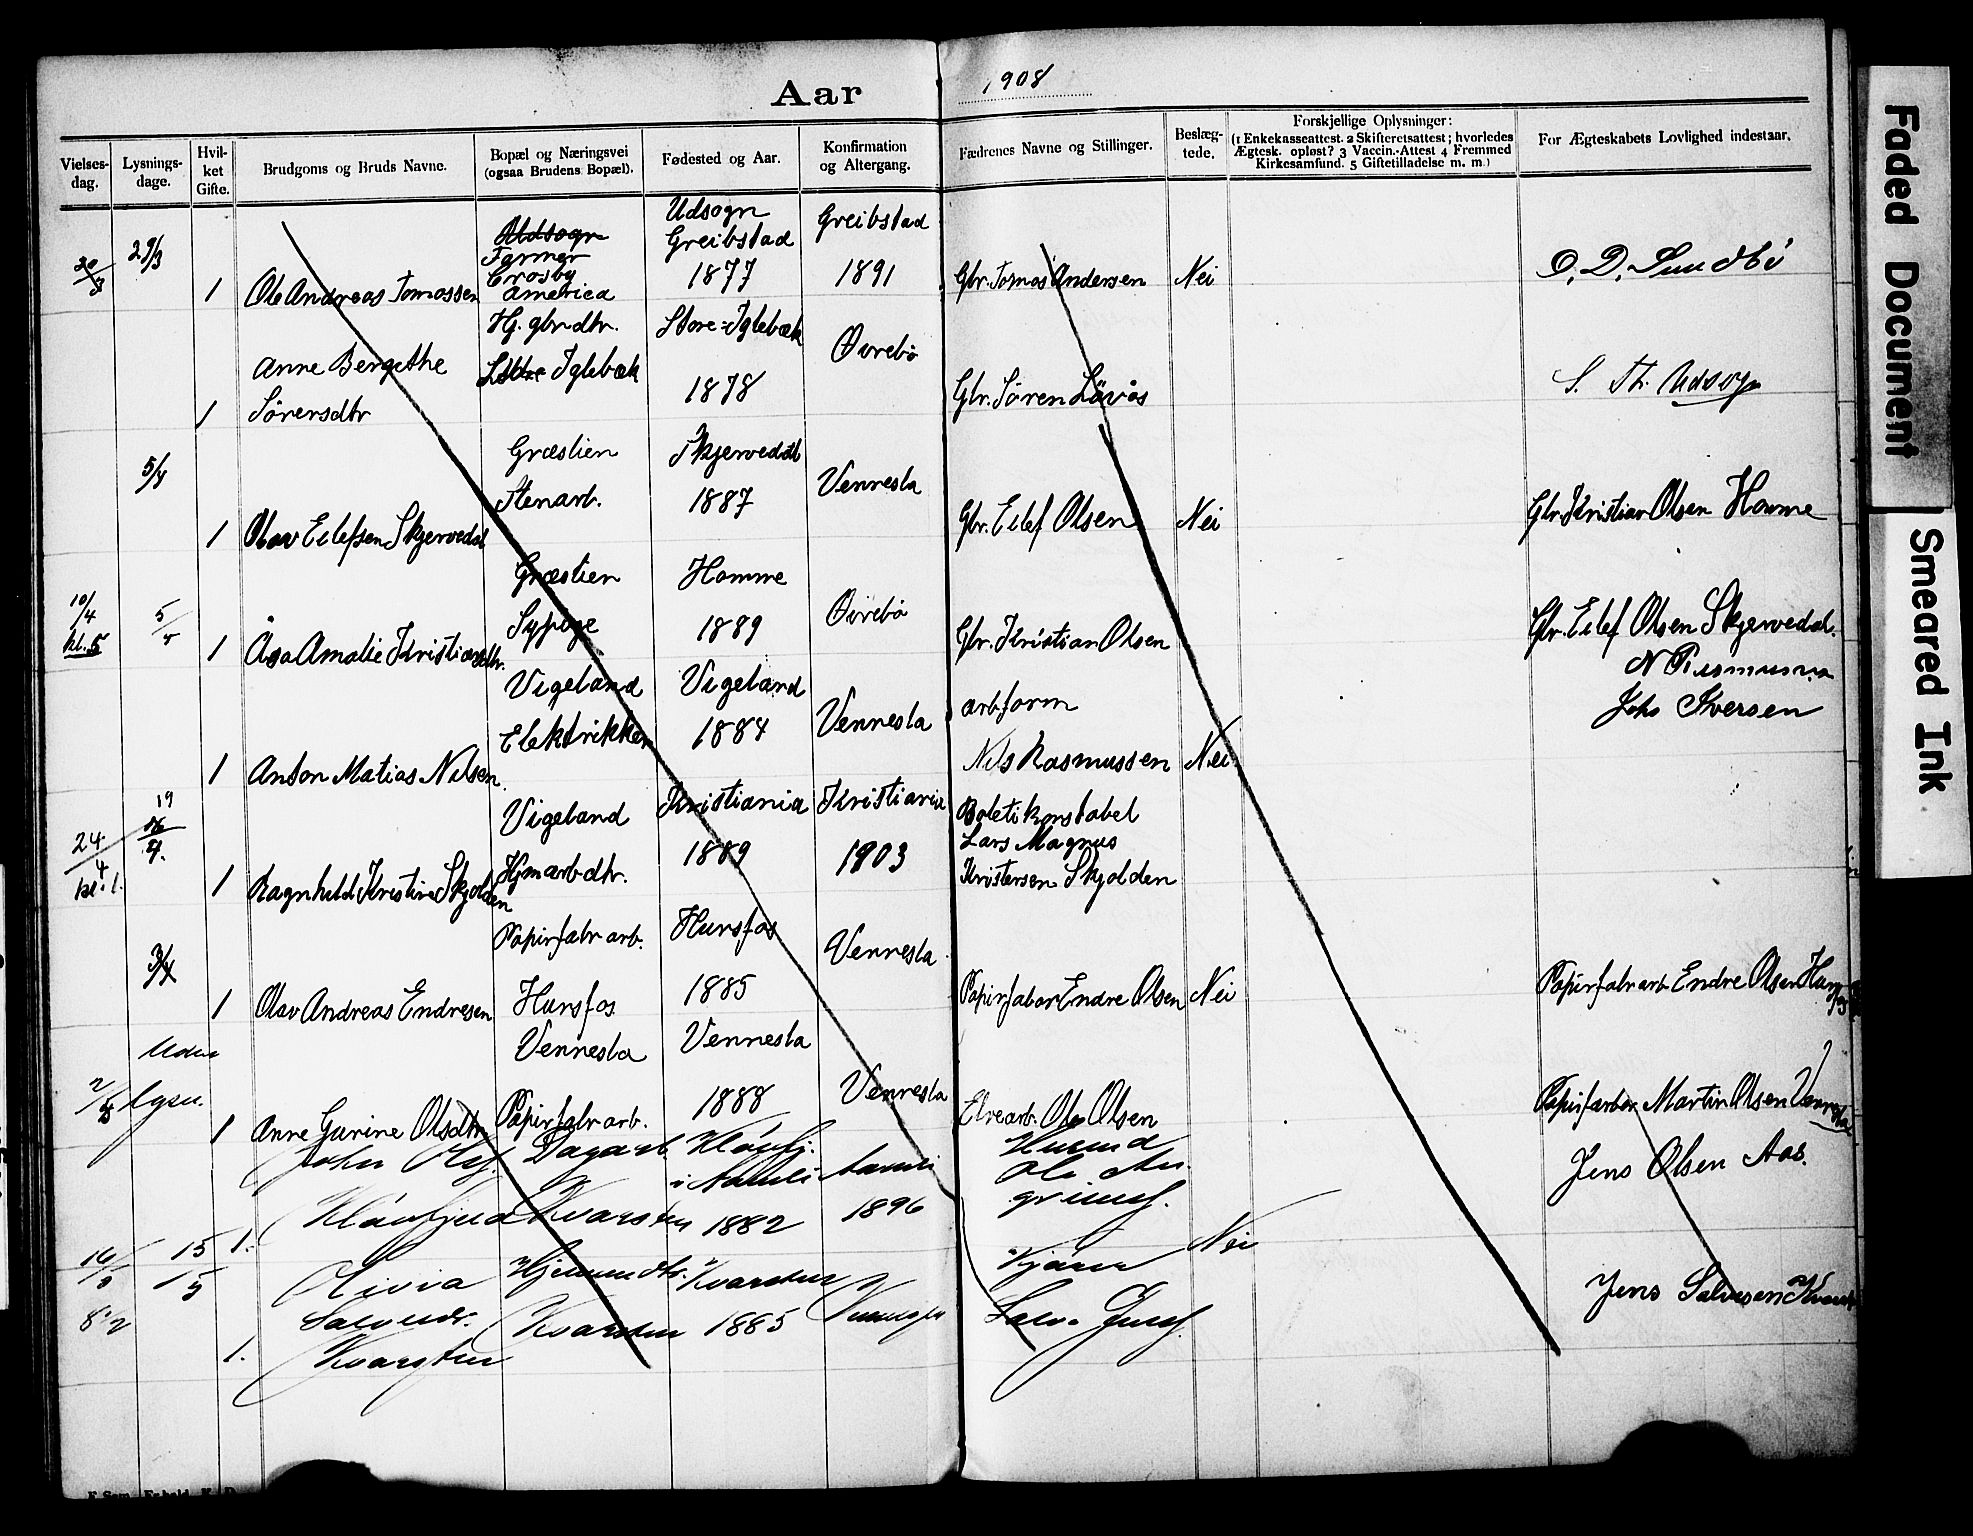 Aar 1908
Vielses-dag.
Lysnings-dage.
Hvil-ket Gifte.
Brudgoms og Bruds Navne.
Bopæl og Næringsvei (ogsaa Brudens Bopæl).
Fødested og Aar.
Konfirmation og Altergang.
Fædrenes Navne og Stillinger.
Beslæg-tede.
Forskjellige Oplysninger:
(1 Enkekasseattest. 2 Skifteretsattest; hvorledes
Ægtesk. opløst? 3 Vaccin.-Attest 4 Fremmed
Kirkesamfund. 5 Giftetilladelse m. m.)
For Ægteskabets Lovlighed indestaar.
30/3 29/3
1 Ole Andreas Tomassen
Udsogn
Farmer
Crosby
America
Udsogn
Greibstad
1877
Greibstad
1891
Gbr. Tomas Andersen Nei
O. D. Sundbö
Anne Bergethe
1 Sørensdtr
Hj. gbrdtr.
Iglebæk
Store-Iglebæk
1878
Øvrebø
Gbr. Søren Løvås
S. Th. Udsogn
5/4
1 Olav Eilefsen Skjervedal
Græstien
Stenarb.
Skjervedal
1887
Vennesla
Gbr. Eilef Olsen Nei
Gbr. Kristian Olsen Homme
10/4
kl. 5
1 Åsa Amalie Kristiansdtr.
Græstien
Sypige
Homme
1889
Øvrebø
Gbr. Kristian Olsen
Gbr. Eilef Olsen Skjervedal.
1 Anton Matias Nilsen
Vigeland
Elektrikker
Vigeland
1884
Vennesla
arbform
Nils Rasmussen Nei
N Rasmussen
Johs Iversen
24/4
kl. 1.
19
1 Ragnhild Kristine Skjolden
Vigeland
Hjmarbdtr.
Kristiania
1889
Kristiania
1903
Politikonstabel
Lars Magnus
Kristensen Skjolden
3/4
1 Olav Andreas Endresen
Papirfabrarb.
Hunsfos
Hunsfos
1885
Vennesla
Papirfabar Endre Olsen Nei
Papirfabrarb Endre Olsen Hunsfos
Uden
lysn.
1 Anne Gurine Olsdtr
Vennesla
Papirfabrarb.
Vennesla
1888
Vennesla
Elvearb. Ole Olsen
Papirfarbar Martin Olsen Vennesla
16/5 15/5
8 1/2
1. John Olsf.
Dagarb.
Kvarsten
i Aamli
1882
Aamli
1896
Husmd
Nei
Jens Olsen Aas.
1. Olivia
Salvesdtr.
Kvarsten
Kvarsten
Kvarsten
1885
Salve
Jens Salvesen Kvarsten
Faded Document
Smeared Ink